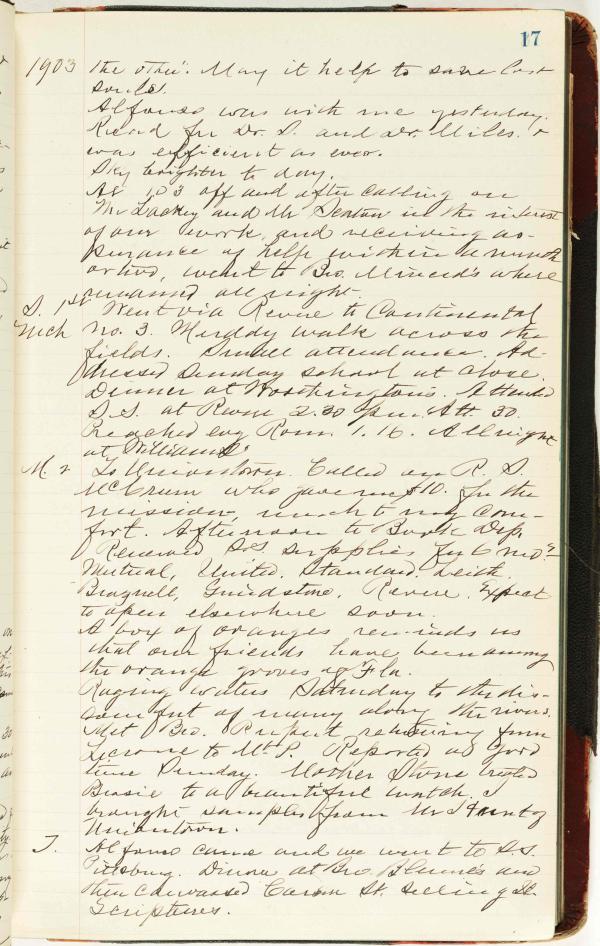 17
1903 the other. May it help to save lost
souls.
Alfonso was with me yesterday.
Read for Dr. S. and Dr. Miles. &
was efficient as ever.
Sky brighter to day.
At 1.03 off and after calling on
Mr Lackey and Mr Seaton in the interest
of our work, and receiving as-
surance of help within a month
or two, went to Bro. Minerd's where
remained all night.
S. 1st Went via Revere to Continental
Mch No. 3. Muddy walk across the
fields. Small attendance. Ad-
dressed Sunday school at close.
Dinner at Worthingtons. Attended
S. S. at Revere 2.30 p.m. Att. 30.
Preached evg Rom. 1.16. All night
at Williams'
M. 2 To Uniontown. Called on R. S.
McCrum who gave me $10. for the
mission, much to my com-
fort. Afternoon to Book Dep.
Renewed S.S. supplies for 6 mos.
Mutual, United, Standard, Leith,
Braznell, Grindstone, Revere. Expect
to open elsewhere soon.
A box of oranges reminds us
that our friends have been among
the orange groves of Fla.
Raging waters Saturday to the dis-
comfort of many along the rivers.
Met Bro. returning from
to Mt P. Reported a good
time Sunday. Mother Stone treated
Bessie to a beautiful watch. I
brought samples from Mr Hunt of
Uniontown.
T. Alfonso came and we went to S.S.
Pittsburg. Dinner at Bro. Blume's and
then canvassed Carson St. selling
Scriptures.